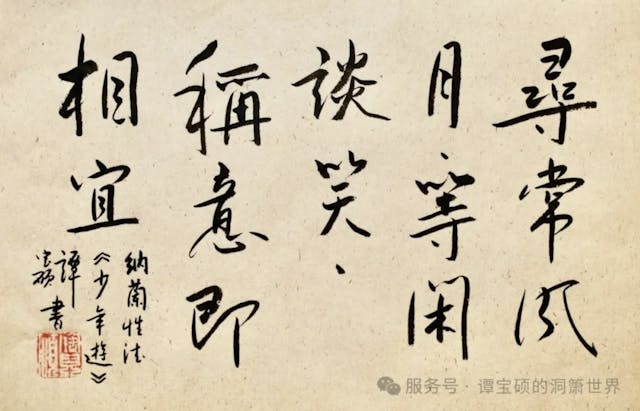 尋常風
月、等閑
談笑、
稱意即
相宜
納蘭性德
《少年遊》
譚寶碩書
服务号·谭宝硕的洞箫世界